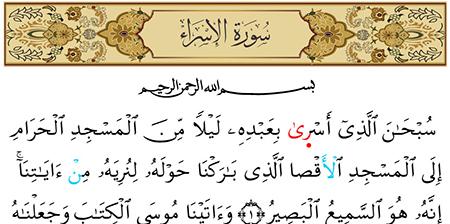 سُورَةُ الإِسْرَاءِ
بِسْمِ اللهِ الرَّحْمَنِ الرَّحِيمِ
سُبْحَٰنَ ٱلَّذِىٓ أَسْرٜىٰ بِعَبْدِهِۦ لَيْلًا مِّنَ ٱلْمَسْجِدِ ٱلْحَرَامِ
إِلَى ٱلْمَسْجِدِ ٱلْأَقْصَا ٱلَّذِى بَٰرَكْنَا حَوْلَهُۥ لِنُرِيَهُۥ مِنْ ءَايَٰتِنَآۚ
إِنَّهُۥ هُوَ ٱلسَّمِيعُ ٱلْبَصِيرُ ﴿١﴾ وَءَاتَيْنَا مُوسَى ٱلْكِتَٰبَ وَجَعَلْنَٰهُ